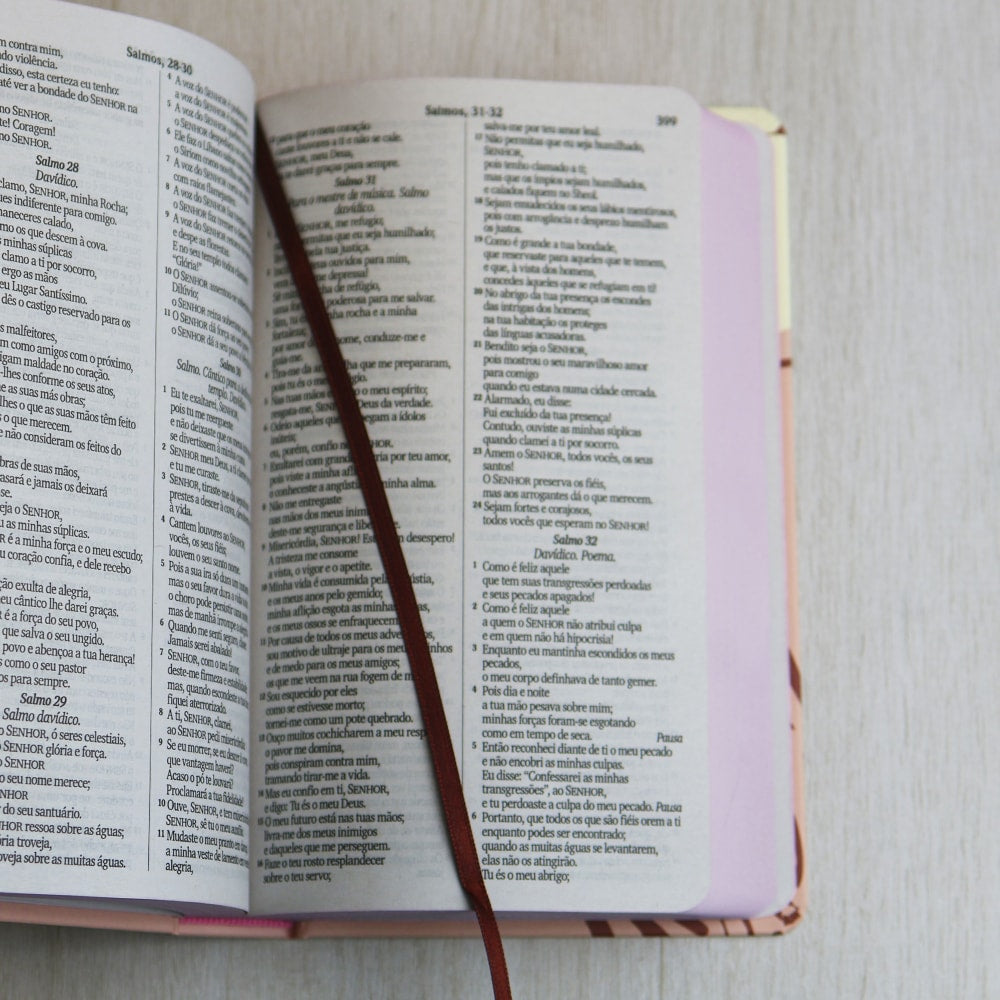 Salmos, 28-30
contra mim,
do violência.
disso, esta certeza eu tenho:
até ver a bondade do SENHOR na
no SENHOR.
te! Coragem!
no SENHOR.
Salmo 28
Davídico.
clamo, SENHOR, minha Rocha;
ues indiferente para comigo.
maneceres calado,
mo os que descem à cova.
s minhas súplicas
clamo a ti por socorro,
ergo as mãos
eu Lugar Santíssimo.
dês o castigo reservado para os
s malfeitores,
m como amigos com o próximo,
igam maldade no coração.
-lhes conforme os seus atos,
e as suas más obras;
lhes o que as suas mãos têm feito
s o que merecem.
e não consideram os feitos do
bras de suas mãos,
asará e jamais os deixará
se.
eja o SENHOR,
u as minhas súplicas.
R é a minha força e o meu escudo;
u coração confia, e dele recebo
ção exulta de alegria,
eu cântico lhe darei graças.
é a força do seu povo,
que salva o seu ungido.
povo e abençoa a tua herança!
s como o seu pastor
os para sempre.
Salmo 29
Salmo davídico.
o SENHOR, ó seres celestiais,
o SENHOR glória e força.
o SENHOR
o seu nome merece;
NHOR
r do seu santuário.
HOR ressoa sobre as águas;
ória troveja,
oveja sobre as muitas águas.
4 A voz do SENHOR é
a voz do SENHOR é
5 A voz do SENHOR
o SENHOR despedaça
6 Ele faz o Líbano saltar
o Siriom como
7 A voz do SENHOR corta
com raios flamejantes
8 A voz do SENHOR faz
o SENHOR faz tremer o
9 A voz do SENHOR
e despe as florestas.
E no seu templo todos
"Glória!"
10 O SENHOR assentou-se
Dilúvio;
o SENHOR reina soberano
11 O SENHOR dá força ao seu
o SENHOR dá a seu povo
Salmo 30
Salmo. Cântico para a
templo. Davídico.
1 Eu te exaltarei, SENHOR,
pois tu me reergueste
e não deixaste que os meus
se divertissem à minha
2 SENHOR meu Deus, a ti
e tu me curaste.
3 SENHOR, tiraste-me da
prestes a descer à cova,
à vida.
4 Cantem louvores ao SENHOR,
vocês, os seus fiéis;
louvem o seu santo nome.
5 Pois a sua ira só dura um
mas o seu favor dura a vida
o choro pode persistir uma
mas de manhã irrompe a
6 Quando me senti seguro,
Jamais serei abalado!
7 SENHOR, com o teu favor,
deste-me firmeza e
mas, quando escondeste
fiquei aterrorizado.
8 A ti, SENHOR, clamei,
ao SENHOR pedi misericórdia
9 Se eu morrer, se eu descer
que vantagem haverá?
Acaso o pó te louvará?
Proclamará a tua fidelidade?
10 Ouve, SENHOR, e tem misericórdia
SENHOR, sê tu o meu auxílio.
11 Mudaste o meu pranto em
a minha veste de lamento em
alegria,
Salmos, 31-32
399
para que o meu coração
louvores a ti e não se cale.
SENHOR, meu Deus,
darei graças para sempre.
Salmo 31
Para o mestre de música. Salmo
davídico.
SENHOR, me refugio;
permitas que eu seja humilhado;
tua justiça.
ouvidos para mim,
vem depressa!
Sê minha de refúgio,
poderosa para me salvar.
Sim, tu rocha e a minha
fortaleza;
por amor nome, conduze-me e
guia-me.
Tira-me da que me prepararam,
pois tu és o meu
5 Nas tuas mãos o meu espírito;
resgata-me, SENHOR, Deus da verdade.
6 Odeio aqueles que apegam a ídolos
inúteis;
eu, porém, confio no SENHOR.
7 Exultarei com grande alegria por teu amor,
pois viste a minha
e conheceste a angústia minha alma.
8 Não me entregaste
nas mãos dos meus
deste-me segurança e
9 Misericórdia, SENHOR! desespero!
A tristeza me consome
a vista, o vigor e o apetite.
10 Minha vida é consumida pela angústia,
e os meus anos pelo gemido;
minha aflição esgota as minhas
e os meus ossos se enfraquecem
11 Por causa de todos os meus adversários,
sou motivo de ultraje para os meus vizinhos
e de medo para os meus amigos;
os que me veem na rua fogem de
12 Sou esquecido por eles
como se estivesse morto;
tornei-me como um pote quebrado.
13 Ouço muitos cochicharem a meu
o pavor me domina,
pois conspiram contra mim,
tramando tirar-me a vida.
14 Mas eu confio em ti, SENHOR,
e digo: Tu és o meu Deus.
15 O meu futuro está nas tuas mãos;
livra-me dos meus inimigos
e daqueles que me perseguem.
16 Faze o teu rosto resplandecer
sobre o teu servo;
salva-me por teu amor leal.
17 Não permitas que eu seja humilhado,
SENHOR,
pois tenho clamado a ti;
mas que os ímpios sejam humilhados,
e calados fiquem no Sheol.
18 Sejam emudecidos os seus lábios mentirosos,
pois com arrogância e desprezo humilham
os justos.
19 Como é grande a tua bondade,
que reservaste para aqueles que te temem,
e que, à vista dos homens,
concedes àqueles que se refugiam em ti!
20 No abrigo da tua presença os escondes
das intrigas dos homens;
na tua habitação os proteges
das línguas acusadoras.
21 Bendito seja o SENHOR,
pois mostrou o seu maravilhoso amor
para comigo
quando eu estava numa cidade cercada.
22 Alarmado, eu disse:
Fui excluído da tua presença!
Contudo, ouviste as minhas súplicas
quando clamei a ti por socorro.
23 Amem o SENHOR, todos vocês, os seus
santos!
O SENHOR preserva os fiéis,
mas aos arrogantes dá o que merecem.
24 Sejam fortes e corajosos,
todos vocês que esperam no SENHOR!
Salmo 32
Davídico. Poema.
1 Como é feliz aquele
que tem suas transgressões perdoadas
e seus pecados apagados!
2 Como é feliz aquele
a quem o SENHOR não atribui culpa
e em quem não há hipocrisia!
3 Enquanto eu mantinha escondidos os meus
pecados,
o meu corpo definhava de tanto gemer.
4 Pois dia e noite
a tua mão pesava sobre mim;
minhas forças foram-se esgotando
como em tempo de seca. Pausa
5 Então reconheci diante de ti o meu pecado
e não encobri as minhas culpas.
Eu disse: "Confessarei as minhas
transgressões", ao SENHOR,
e tu perdoaste a culpa do meu pecado. Pausa
6 Portanto, que todos os que são fiéis orem a ti
enquanto podes ser encontrado;
quando as muitas águas se levantarem,
elas não os atingirão.
Tu és o meu abrigo;